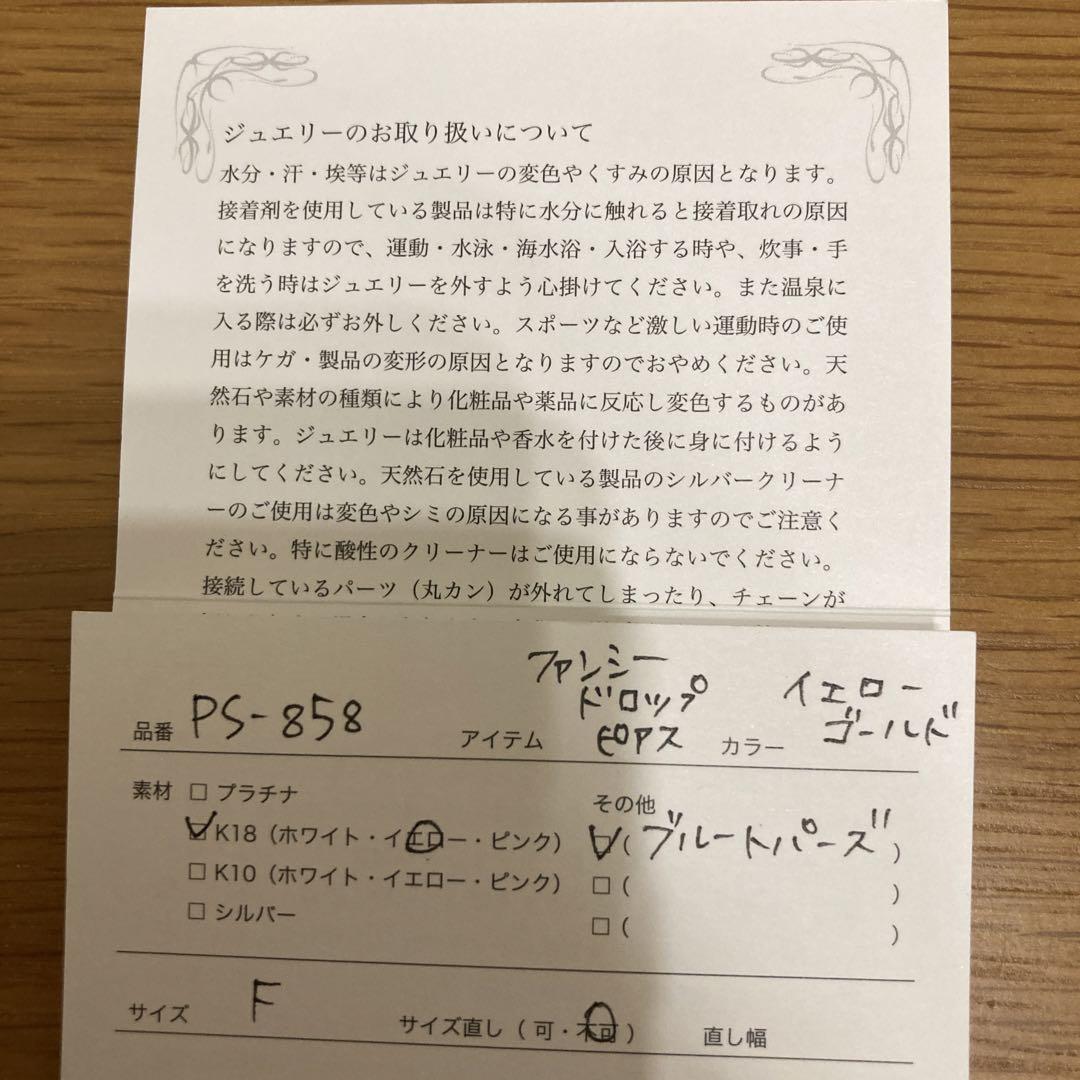 ジュエリーのお取り扱いについて
水分・汗・埃等はジュエリーの変色やくすみの原因となります。
接着剤を使用している製品は特に水分に触れると接着取れの原因
になりますので、運動・水泳・海水浴・入浴する時や、炊事・手
を洗う時はジュエリーを外すよう心掛けてください。また温泉に
入る際は必ずお外しください。スポーツなど激しい運動時のご使
用はケガ・製品の変形の原因となりますのでおやめください。天
然石や素材の種類により化粧品や薬品に反応し変色するものがあ
ります。ジュエリーは化粧品や香水を付けた後に身に付けるよう
にしてください。天然石を使用している製品のシルバークリーナ
ーのご使用は変色やシミの原因になる事がありますのでご注意く
ださい。特に酸性のクリーナーはご使用にならないでください。
接続しているパーツ（丸カン）が外れてしまったり、チェーンが
品番 PS-858 アイテム ファンシードロップピアス カラー イエローゴールド
素材 □ プラチナ その他
☑ K18（ホワイト・イエロー・ピンク） ☑（ブルートパーズ）
□ K10（ホワイト・イエロー・ピンク） □（ ）
□ シルバー □（ ）
サイズ F サイズ直し（可・不可） 直し幅